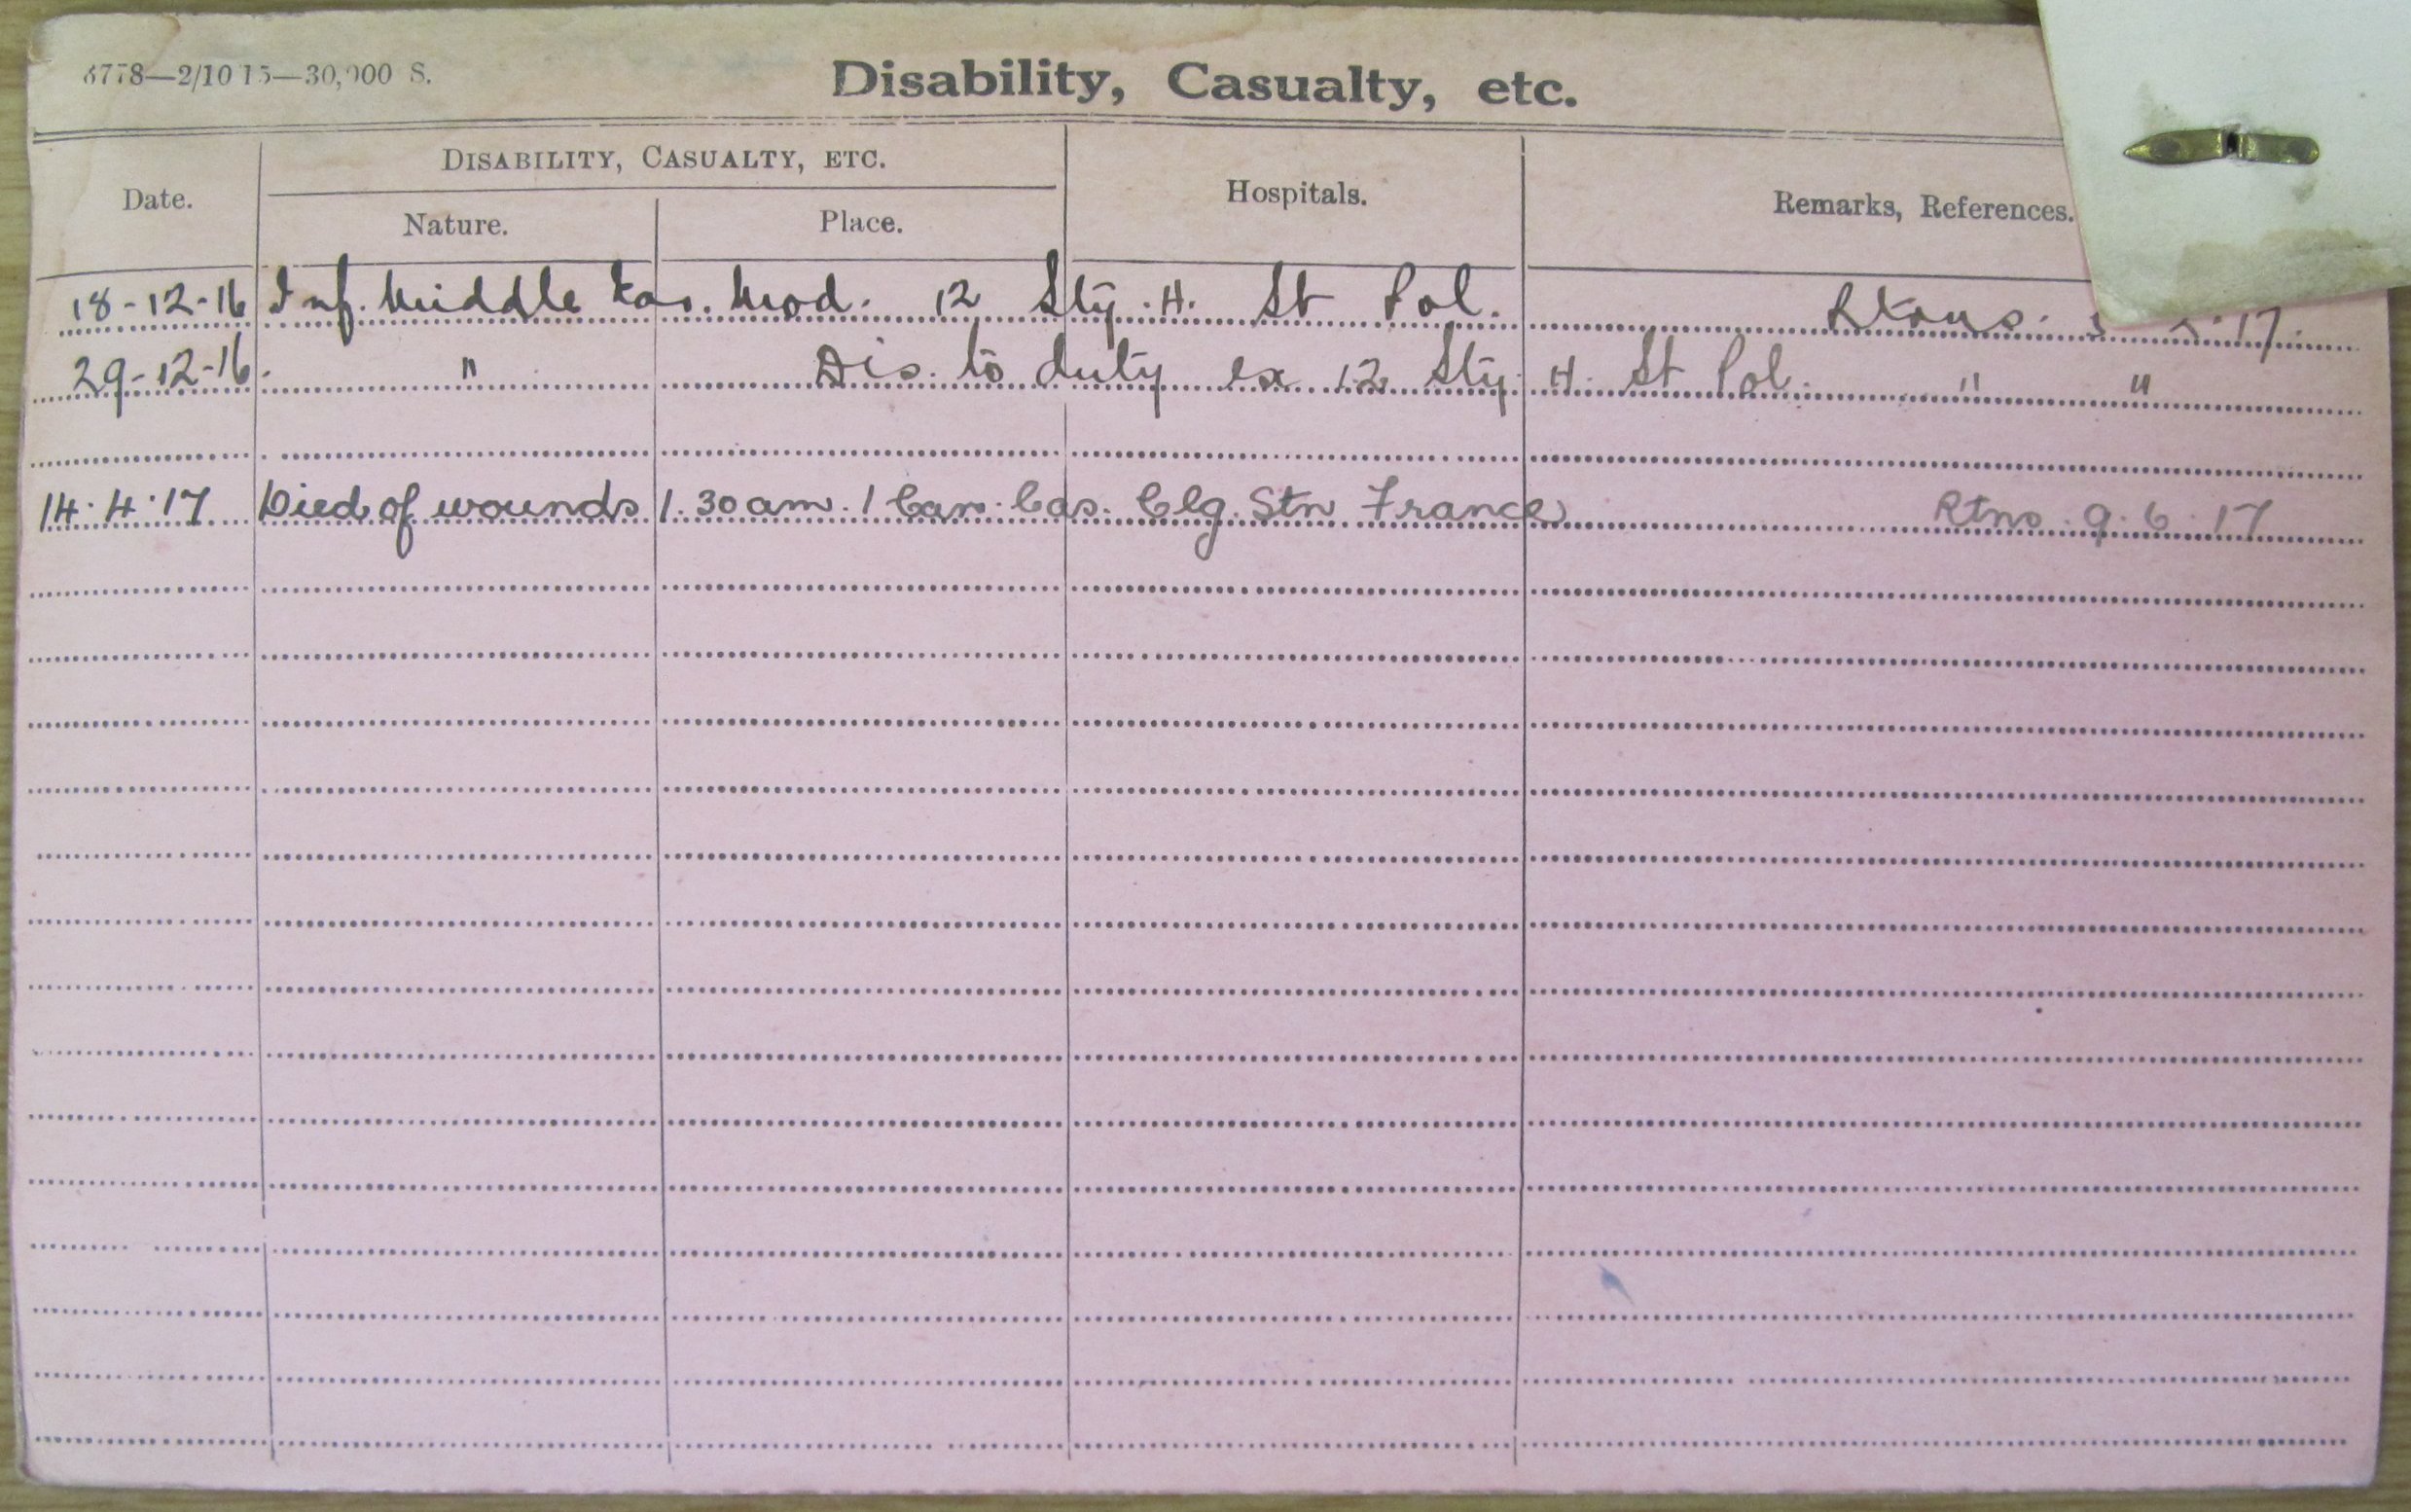 8778—2/10 15—30,000 S.
Disability, Casualty, etc.
Date.
DISABILITY, CASUALTY, ETC.
Nature.
Place.
Hospitals.
Remarks, References.
18-12-16 Inf. Middle Ear. Mod. 12 Sty. H. St Pol. Rtns. 17.
29-12-16. " Dis. to duty ex 12 Sty. H. St Pol. " "
14.4.17 Died of wounds 1.30 am. 1 Can. Cas. Clg. Stn France Rtns. 9.6.17